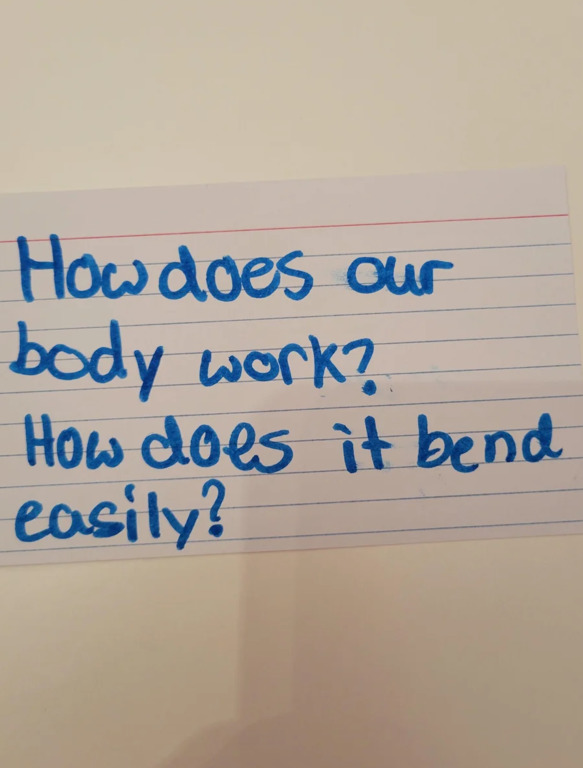 How does our
body work?
How does it bend
easily?